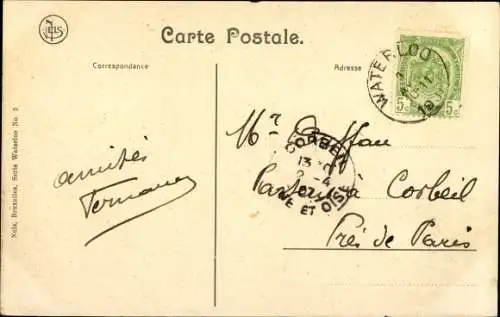 Carte Postale.
Correspondance
Adresse
WATERLOO
5c 5c
Mr
CORBEIL
13
2 - 4
SEINE ET OISE
Corbeil
Près de Paris
amitiés
Nels, Bruxelles, Série Waterloo No. 2